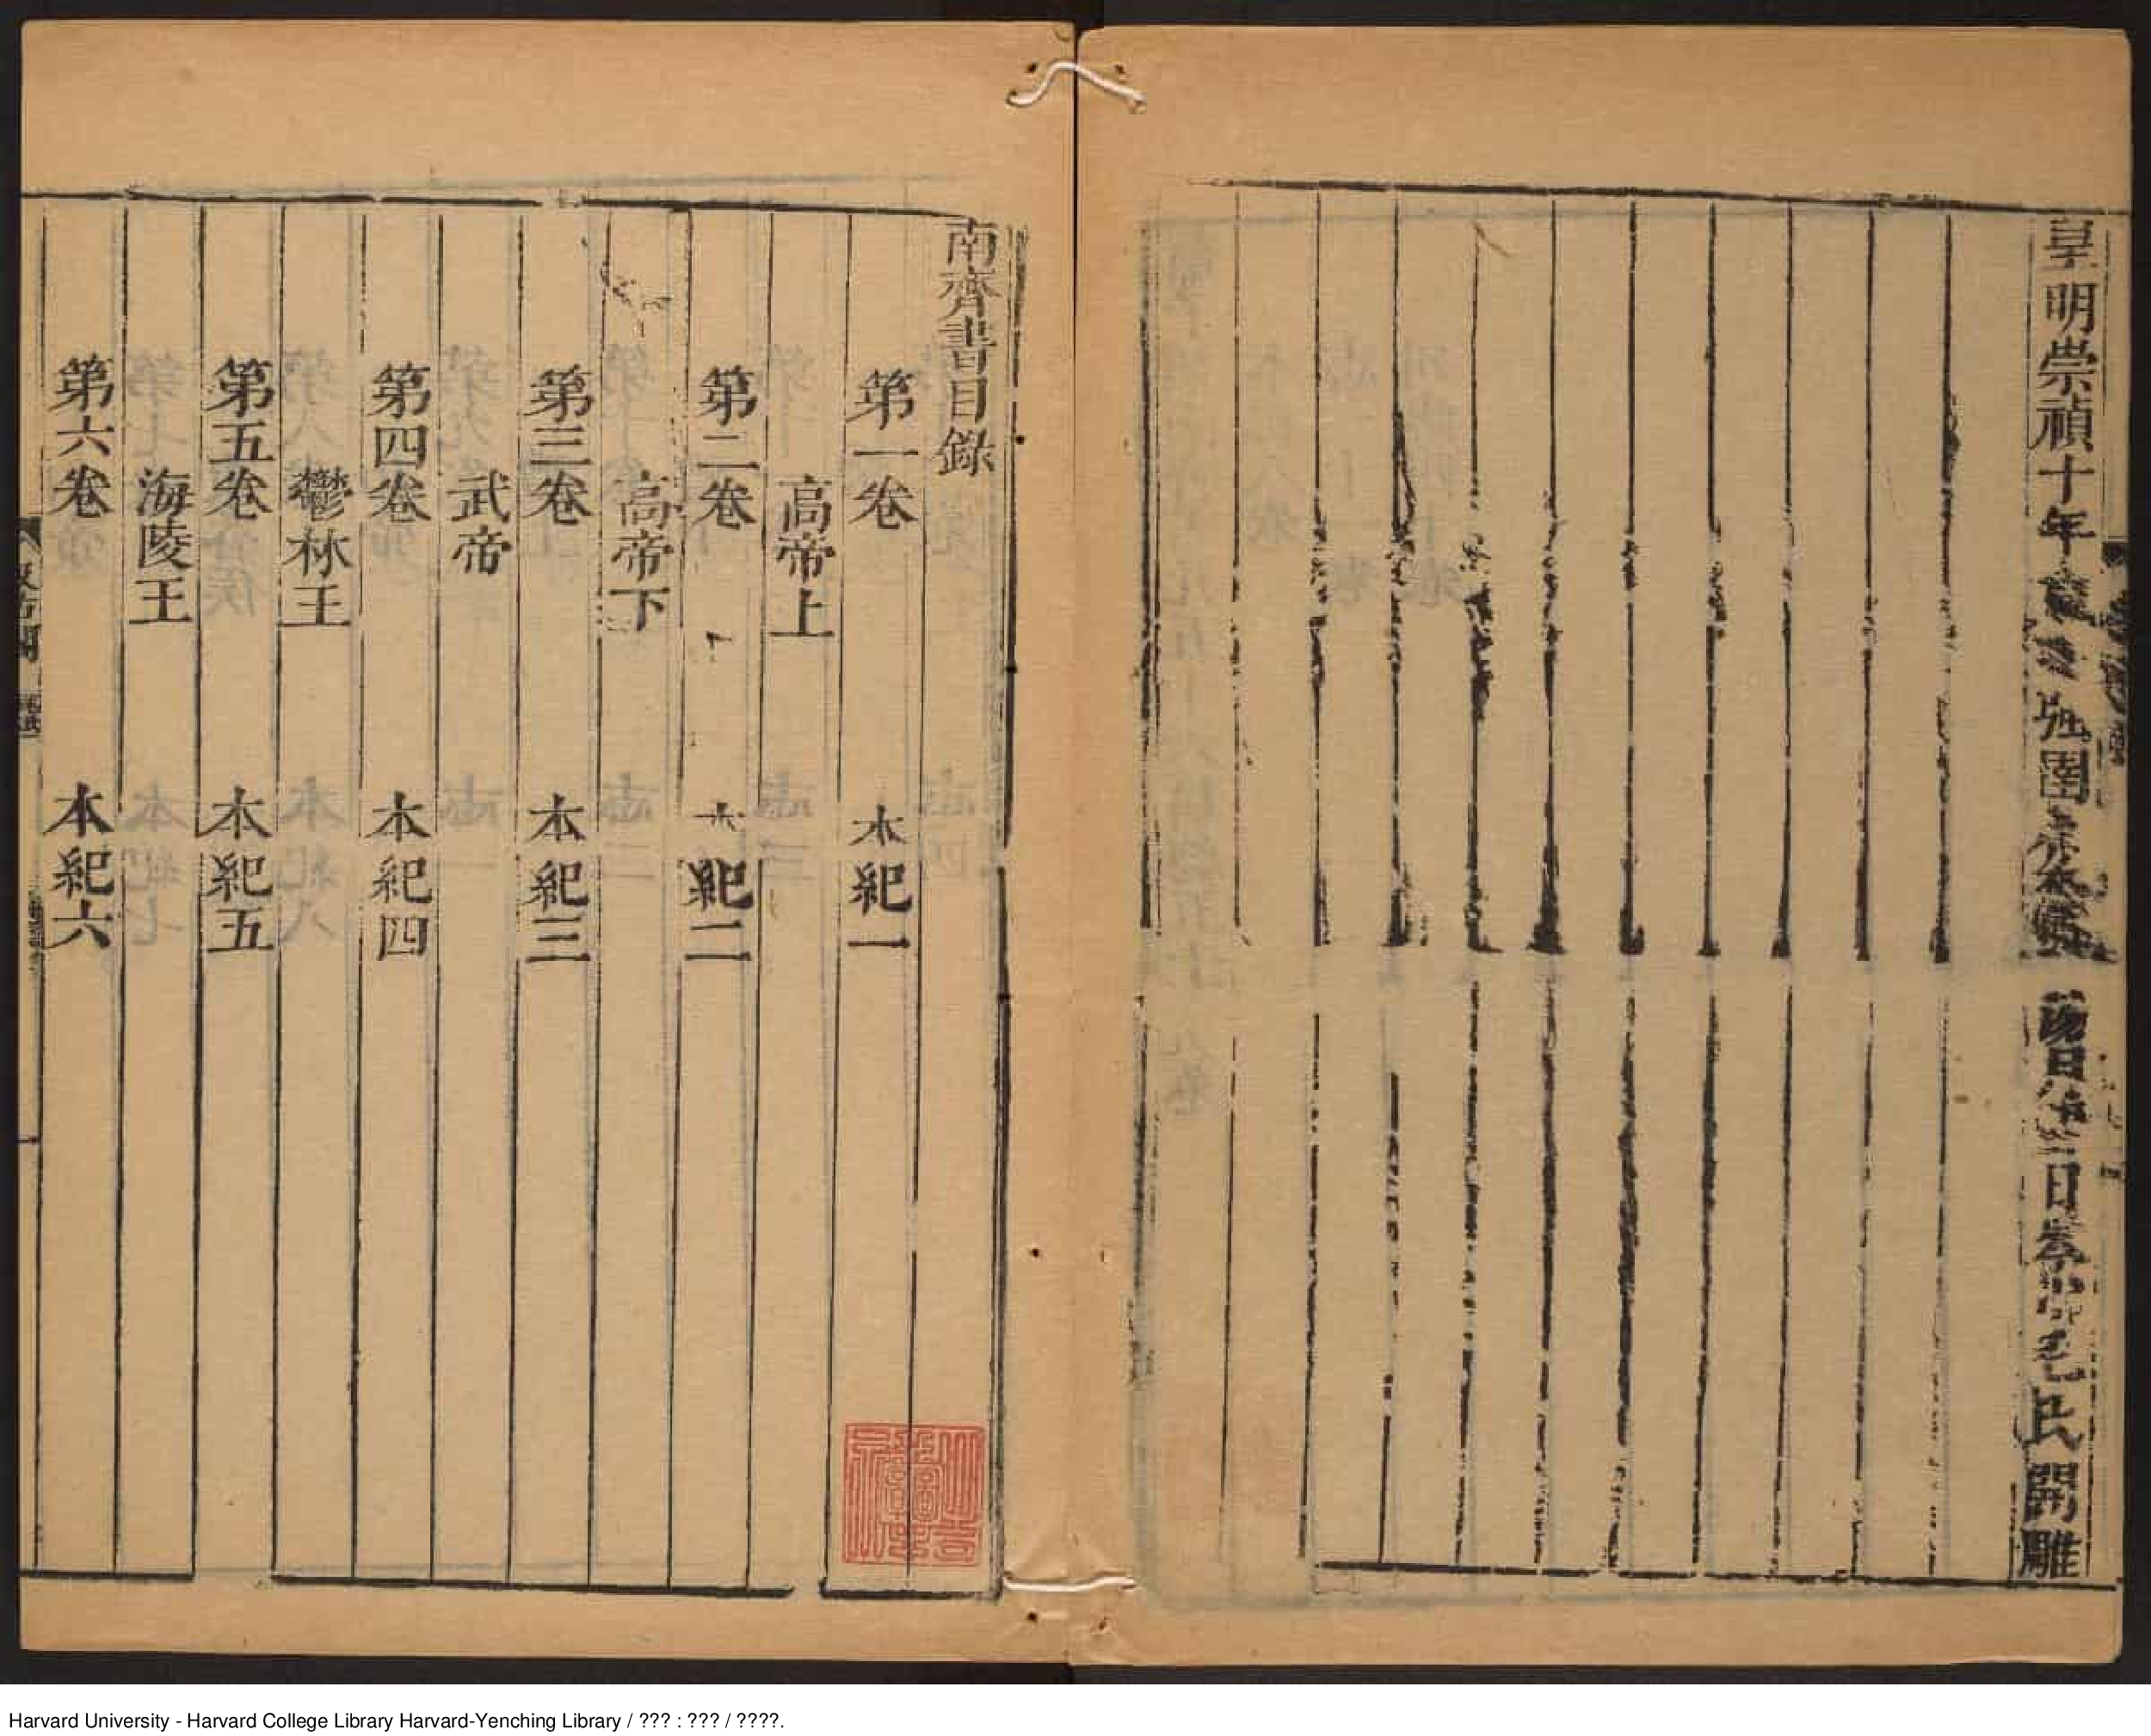 皇明崇禎十年歲 強圉赤奮 日 日 琴川毛氏開雕
南齊書目錄
第一卷 本紀一
高帝上
第二卷 本紀二
高帝下
第三卷 本紀三
武帝
第四卷 本紀四
鬱林王
第五卷 本紀五
海陵王
第六卷 本紀六
Harvard University - Harvard College Library Harvard-Yenching Library / ??? : ??? / ????.